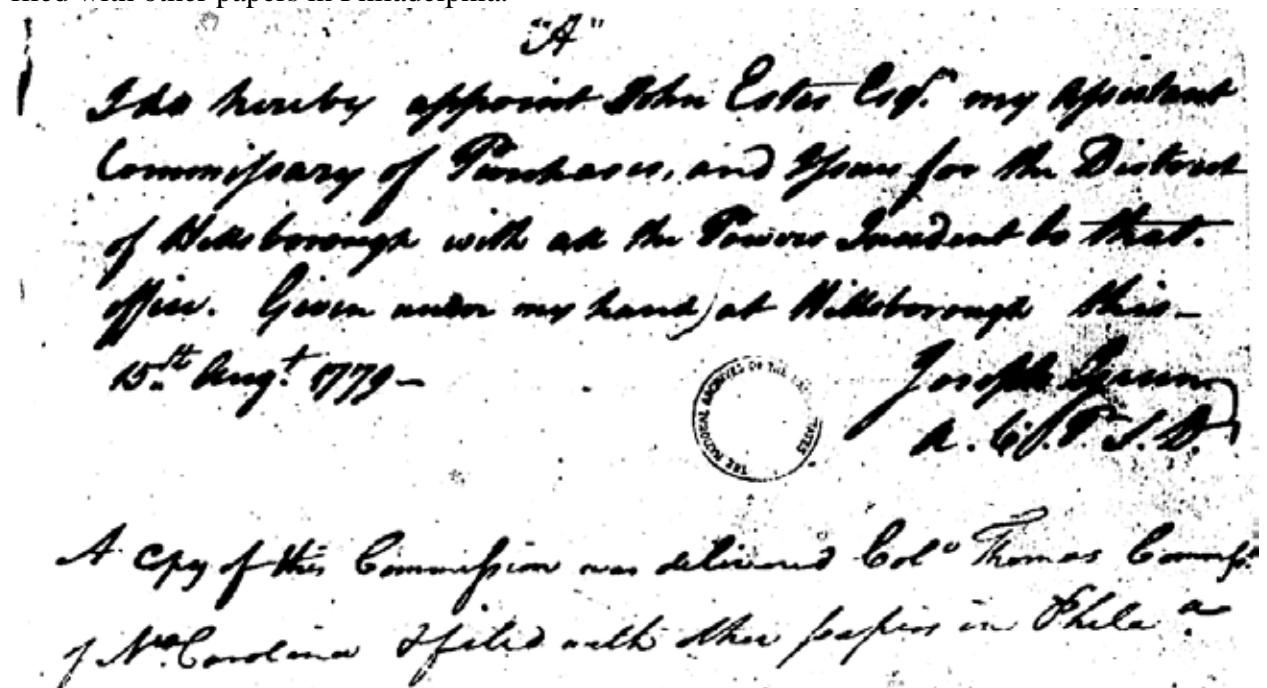 filed with other papers in Philadelphia.
"A"
I do hereby appoint John Estes Esqr. my Assistant
Commissary of Purchases, and Issues for the District
of Hillsborough with all the Powers Incident to that
office. Given under my hand at Hillsborough this –
15th Augt. 1779 –
Joseph Green
A. C. P. S. D.
THE NATIONAL ARCHIVES OF THE STATES
A Copy of this Commission was delivered Colo Thomas Commissr.
of No. Carolina & filed with other papers in Phila